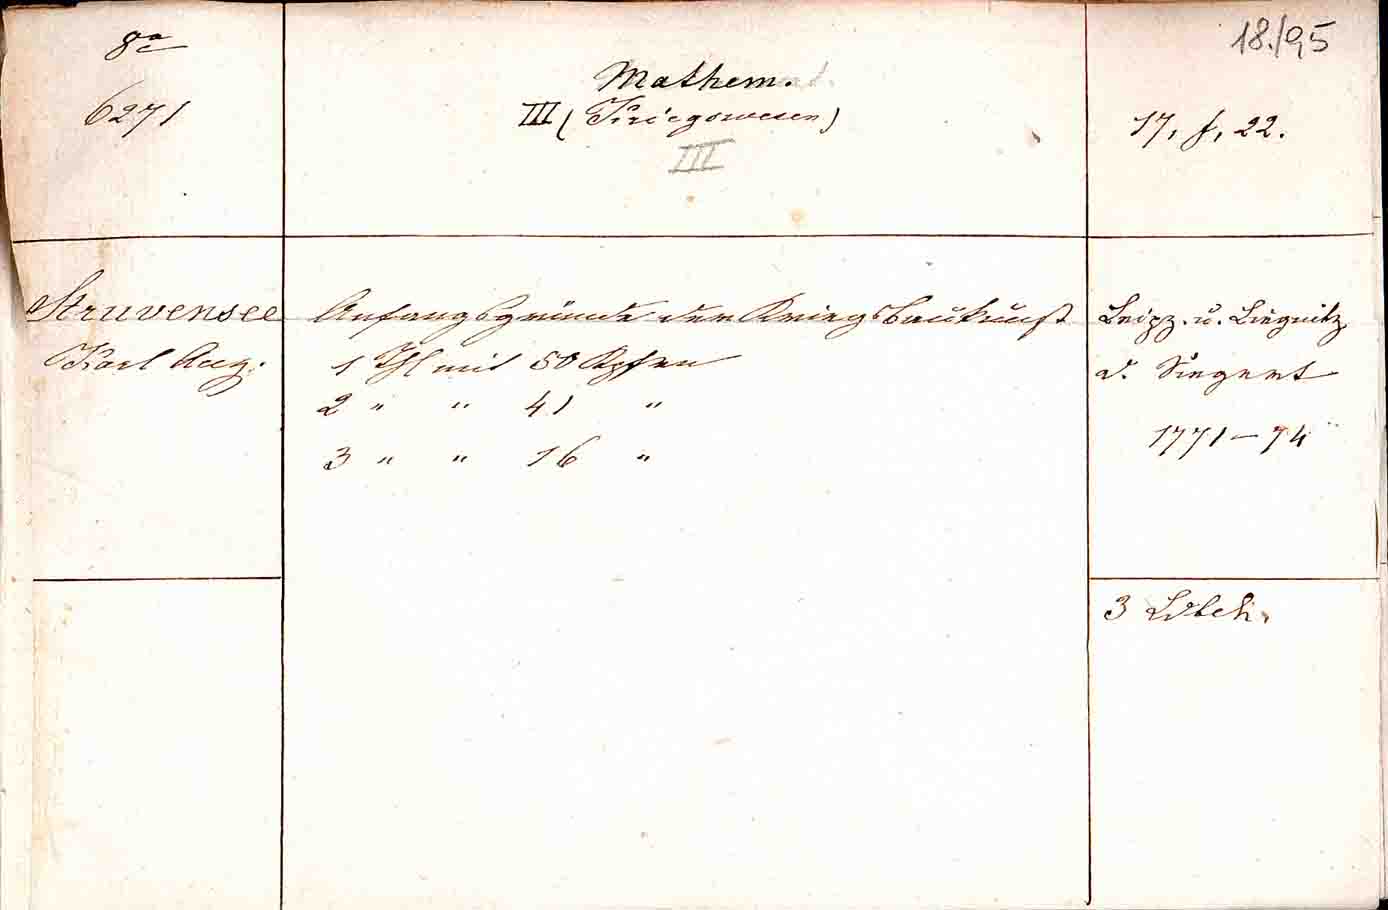 8º
6271
Mathem.
III (Kriegswesen)
III
18.195
17, f, 22.
Struvensee
Karl Aug.
Anfangsgründe der Kriegsbaukunst
1 Thl mit 50 Kpfrn
2 " " 41 "
3 " " 16 "
Leipz. u. Liegnitz
d. Siegert
1771-74
3 Ldbch.